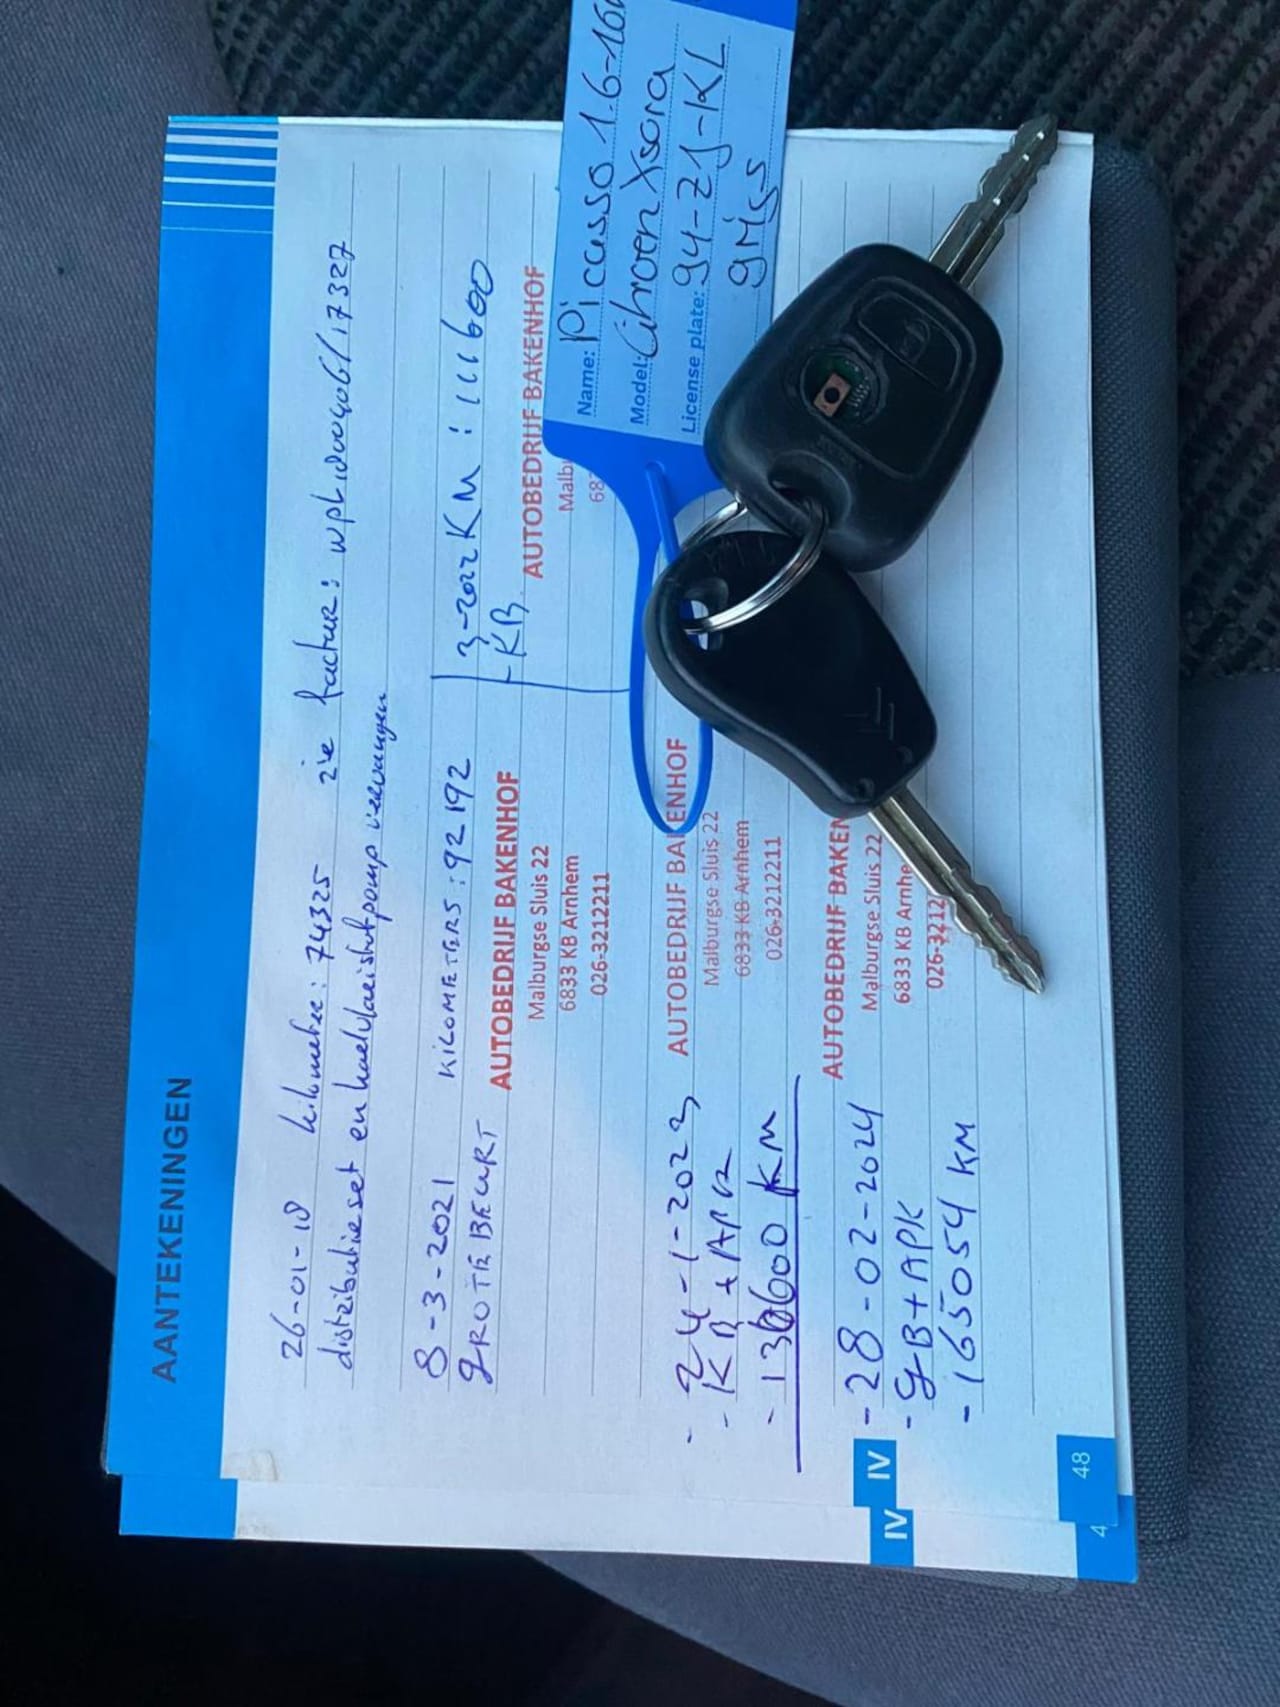 AANTEKENINGEN
26-01-18 kilometer: 74325 zie factuur: wpl
distributieset en koelvloeistofpomp vervangen
8-3-2021 KILOMETERS: 92192
GROTE BEURT
AUTOBEDRIJF BAKENHOF
Malburgse Sluis 22
6833 KB Arnhem
026-3212211
3-2022 KM: 111600
- KB
AUTOBEDRIJF BAKENHOF
Malb
68
- 24-1-2023
- KB + APK
- 136600 KM
AUTOBEDRIJF BAKENHOF
Malburgse Sluis 22
6833 KB Arnhem
026-3212211
- 28-02-2024
- GB + APK
- 165054 KM
AUTOBEDRIJF BAKEN
Malburgse Sluis 22
6833 KB Arnhe
026-3212
IV
IV
48
4
Name: Picasso 1.6-16
Model: Citroen Xsara
License plate: 94-ZJ-KL
grijs